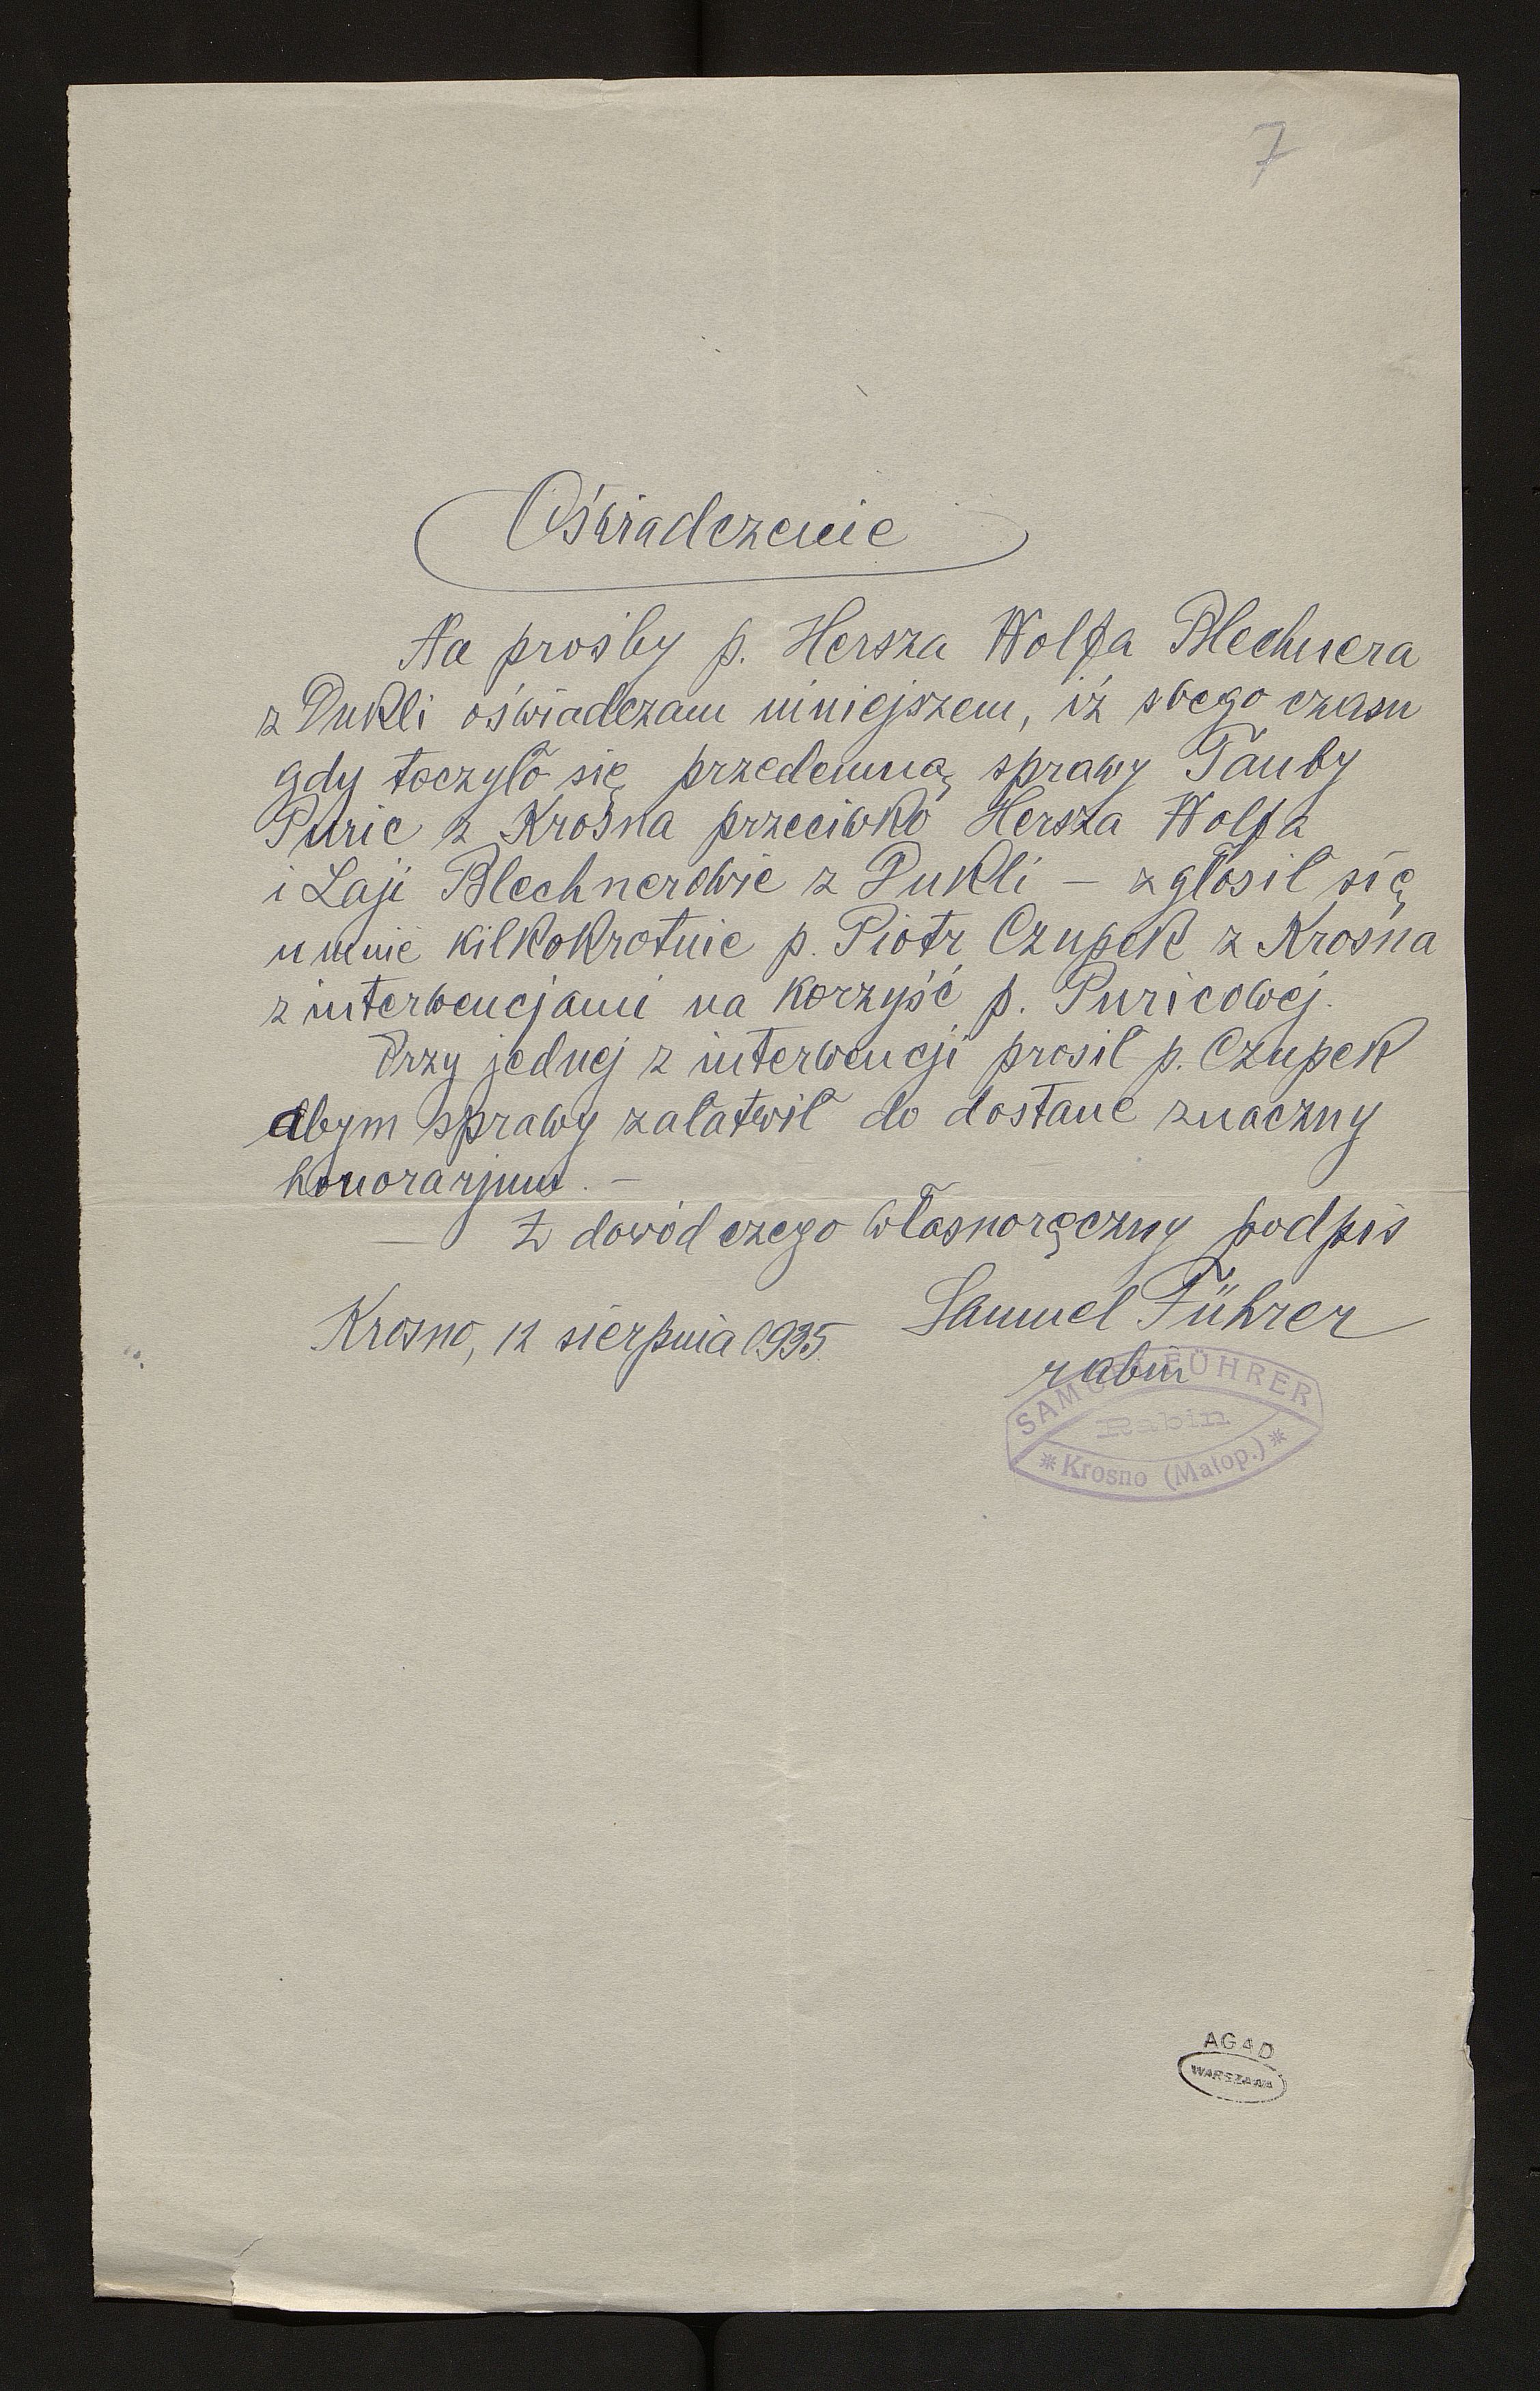 7
Oświadczenie
Na prośby p. Hersza Wolfa Blechnera
z Dukli oświadczam niniejszem, iż swego czasu
gdy toczyło się przedemną sprawy Tauby
Puric z Krosna przeciwko Hersza Wolfa
i Laji Blechnerowie z Dukli – zgłosił się
u mnie kilkokrotnie p. Piotr Czupek z Krosna
z interwencjami na korzyść p. Puricowej.
Przy jednej z interwencji prosił p. Czupek
abym sprawy załatwił do dostane znaczny
honorarjum. –
– Z dowód czego własnoręczny podpis
Krosno, 12 sierpnia 1935. Samuel Führer
rabin
SAMUEL FÜHRER
Rabin
* Krosno (Małop.) *
AGAD
WARSZAWA